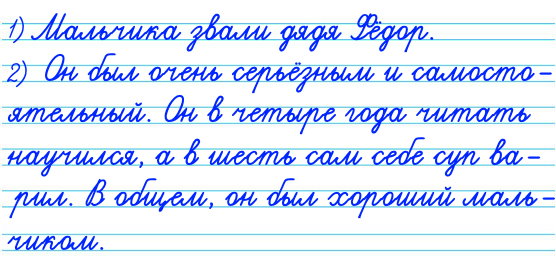 1) Мальчика звали дядя Фёдор.
2) Он был очень серьёзным и самосто-
ятельный. Он в четыре года читать
научился, а в шесть сам себе суп ва-
рил. В общем, он был хороший маль-
чиком.